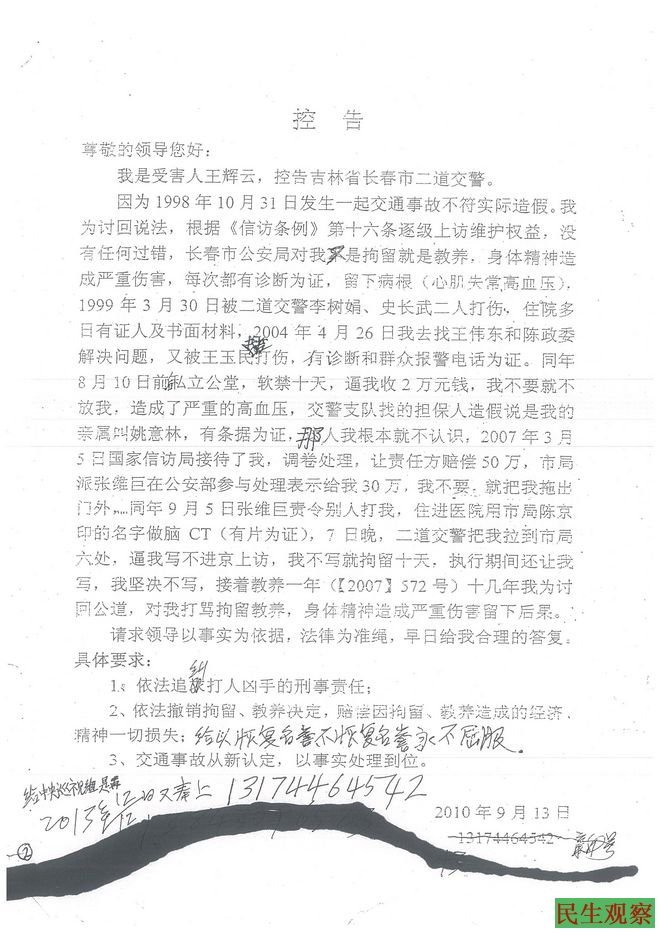 控 告
尊敬的领导您好：
我是受害人王辉云，控告吉林省长春市二道交警。
因为 1998 年 10 月 31 日发生一起交通事故不符实际造假。我
为讨回说法，根据《信访条例》第十六条逐级上访维护权益，没
有任何过错，长春市公安局对我不是拘留就是教养，身体精神造
成严重伤害，每次都有诊断为证，留下病根（心肌失常高血压），
1999 年 3 月 30 日被二道交警李树娟、史长武二人打伤，住院多
日有证人及书面材料，2004 年 4 月 26 日我去找王伟东和陈政委
解决问题，又被王玉民打伤，有诊断和群众报警电话为证。同年
8 月 10 日前私立公堂，软禁十天，逼我收 2 万元钱，我不要就不
放我，造成了严重的高血压，交警支队找的担保人造假说是我的
亲属叫姚意林，有条据为证，那人我根本就不认识，2007 年 3 月
5 日国家信访局接待了我，调卷处理，让责任方赔偿 50 万，市局
派张维巨在公安部参与处理表示给我 30 万，我不要，就把我拖出
门外，同年 9 月 5 日张维巨责令别人打我，住进医院用市局陈京
印的名字做脑 CT（有片为证），7 日晚，二道交警把我拉到市局
六处，逼我写不进京上访，我不写就拘留十天，执行期间还让我
写，我坚决不写，接着教养一年（【2007】572 号）十几年我为讨
回公道，对我打骂拘留教养，身体精神造成严重伤害留下后果。
请求领导以事实为依据，法律为准绳，早日给我合理的答复。
具体要求：
1、依法追纠打人凶手的刑事责任；
2、依法撤销拘留、教养决定，赔偿因拘留、教养造成的经济、
精神一切损失；给以恢复名誉不恢复名誉永不屈服。
3、交通事故从新认定，以事实处理到位。
给中央巡视组
2013年 13174464542
2010 年 9 月 13 日
13174464542
②
民生观察